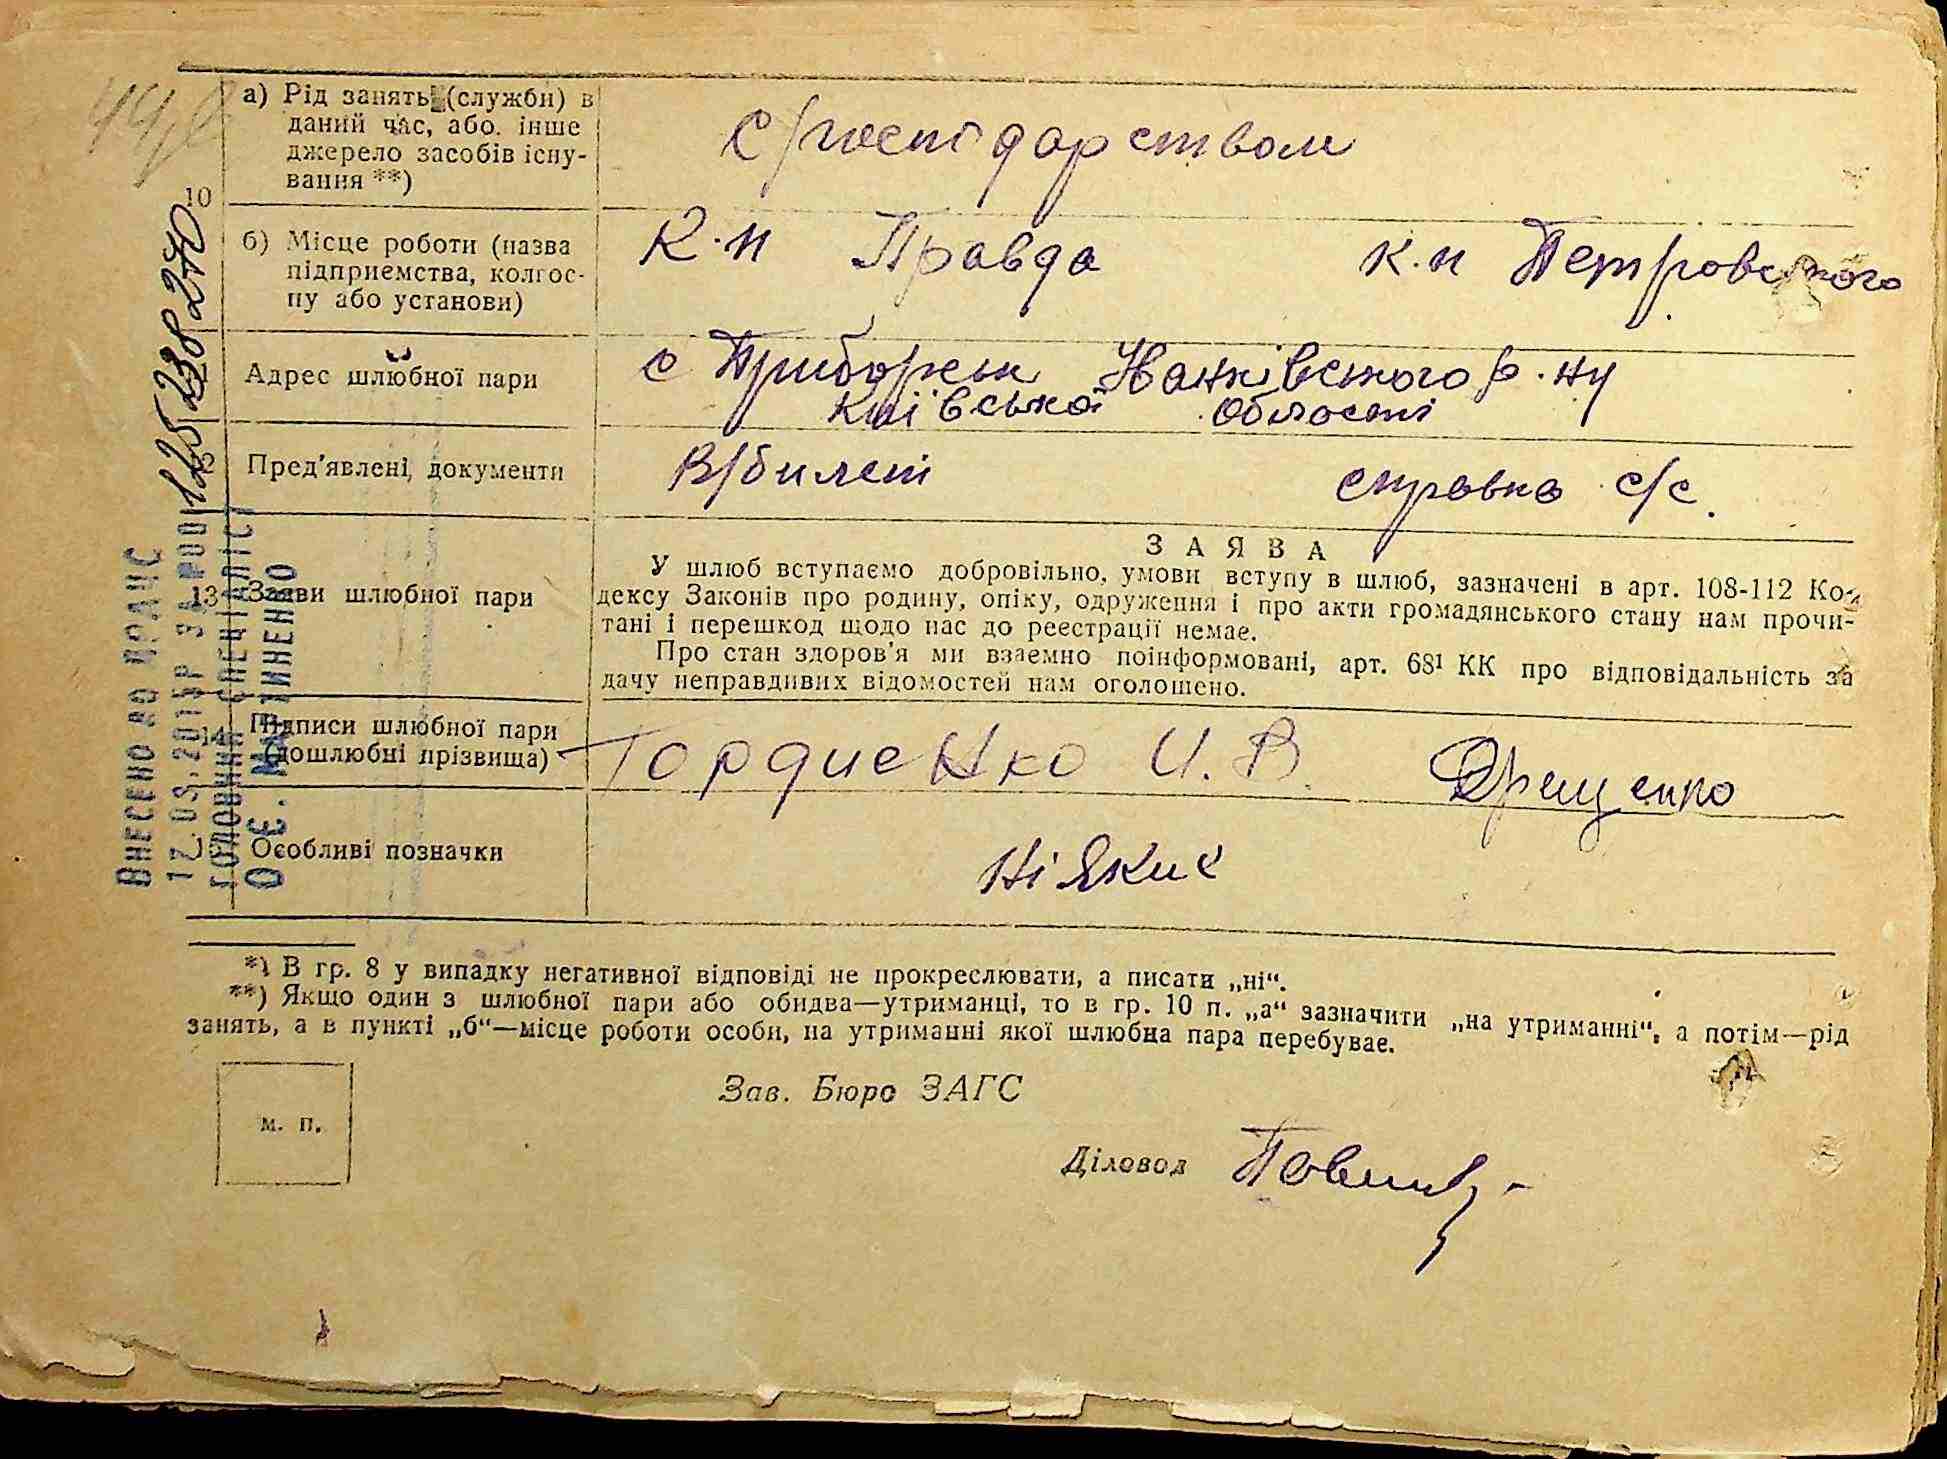 а) Рід занять (служби) в
даний час, або інше
джерело засобів існу-
вання **)
с/господарством
10
б) Місце роботи (назва
підприємства, колгос-
пу або установи)
К.п Правда к.п Петровского
Адрес шлюбної пари
с Приборськ Іванківського р.ну
Київської області
12
Пред'явлені, документи
В/билет справка с/с.
13
Заяви шлюбної пари
ЗАЯВА
У шлюб вступаємо добровільно, умови вступу в шлюб, зазначені в арт. 108-112 Ко-
дексу Законів про родину, опіку, одруження і про акти громадянського стану нам прочи-
тані і перешкод щодо нас до реестрації немає.
Про стан здоров'я ми взаємно поінформовані, арт. 68¹ КК про відповідальність за
дачу неправдивих відомостей нам оголошено.
14
Підписи шлюбної пари
(дошлюбні прізвища)
Гордиенко И.В. Дрещенко
15
Особливі позначки
Ніяких
*) В гр. 8 у випадку негативної відповіді не прокреслювати, а писати „ні“.
**) Якщо один з шлюбної пари або обидва—утриманці, то в гр. 10 п. „а“ зазначити „на утриманні“, а потім—рід
занять, а в пункті „б“—місце роботи особи, на утриманні якої шлюбна пара перебуває.
м. п.
Зав. Бюро ЗАГС
Діловод
ВНЕСЕНО ДО ДРАЦС
ГОЛОВНИЙ СПЕЦІАЛІСТ